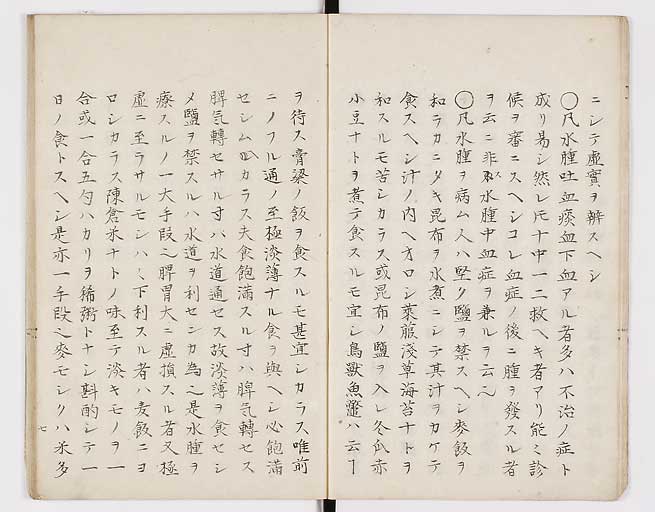 ニシテ虚實ヲ辨スヘシ
〇凡水腫吐血痰血下血アル者多ハ不治ノ症ト
成リ易シ然レ𪜈十中一二救ヘキ者アリ能々診
候ヲ審ニスヘシコレ血症ノ後ニ腫ヲ發スル者
ヲ云ニ非ス水腫中血症ヲ兼ルヲ云
〇凡水腫ヲ病ム人ハ堅ク鹽ヲ禁スヘシ麥飯ヲ
和ラカニタキ昆布ヲ水煮ニシテ其汁ヲカケテ
食スヘシ汁ノ内ヘ方ロシ萊菔淺草海苔ナトヲ
和スルモ苦シカラス或昆布ノ鹽ヲ入レ冬瓜赤
小豆ナトヲ煮テ食スルモ宜シ鳥獸魚鼈ハ云ヿ
ヲ待ス膏粱ノ飯ヲ食スルモ甚宜シカラス唯前
ニノフル通ノ至極淡薄ナル食ヲ與ヘシ必飽滿
セシムヘカラス夫食飽滿スル寸ハ脾氣轉セス
脾氣轉セサル寸ハ水道通セス故淡薄ヲ食セシ
メ鹽ヲ禁スルハ水道ヲ利センカ為之是水腫ヲ
療スルノ一大手段之脾胃大ニ虚損スル者又極
虚ニ至ラサルモシハ〱下利スル者ハ麦飯ニヨ
ロシカラス陳倉米ナトノ味至テ淡キモノヲ一
合或一合五勺ハカリヲ稀粥トナシ斟酌シテ一
日ノ食トスヘシ是亦一手段之麥モシクハ米多
七